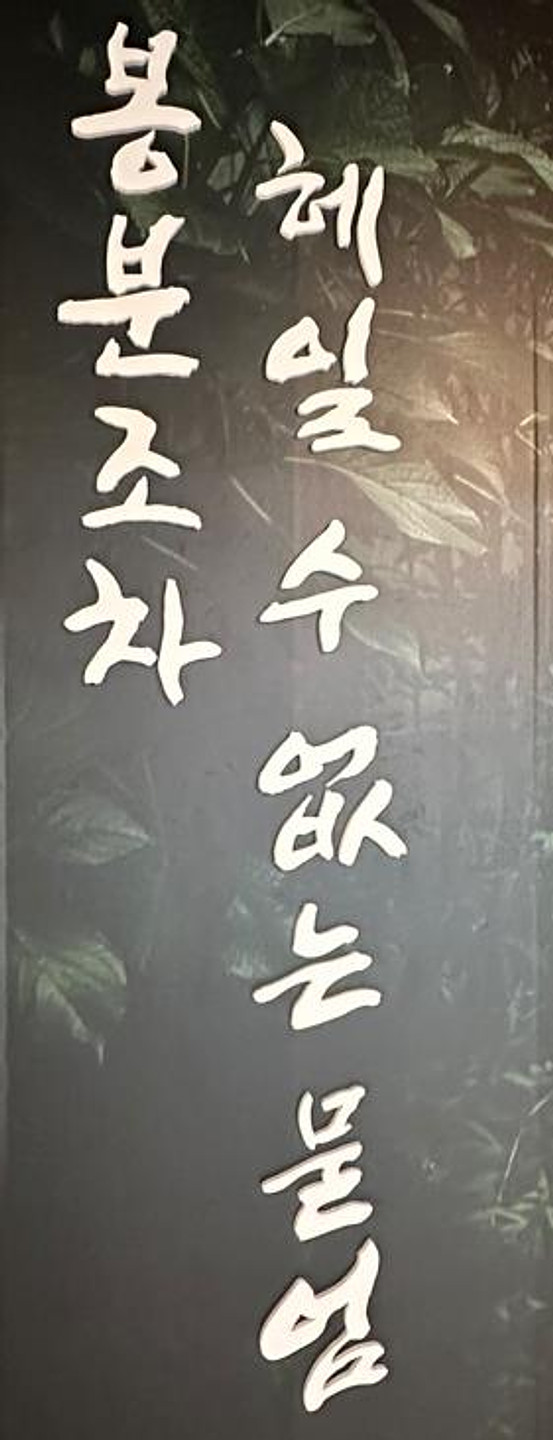 봉분조차
헤일 수 없는 물엄